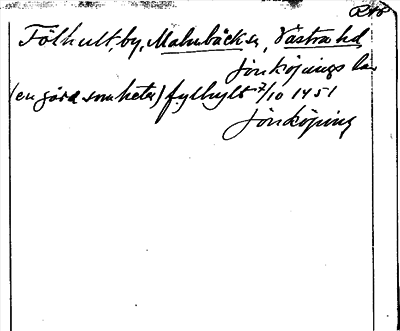 RAp
Fölhult, by, Malmbäck sn, Västra hd
Jönköpings län
(en gård som heter) fylhylt 7/10 1451
Jönköping